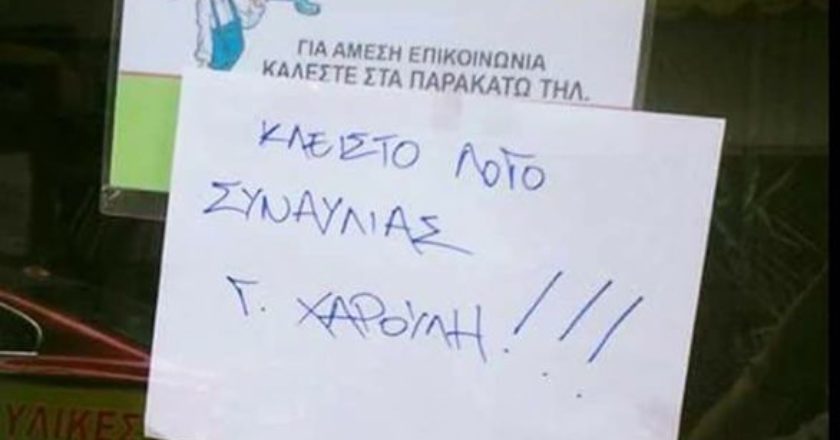 ΓΙΑ ΑΜΕΣΗ ΕΠΙΚΟΙΝΩΝΙΑ
ΚΑΛΕΣΤΕ ΣΤΑ ΠΑΡΑΚΑΤΩ ΤΗΛ.
ΚΛΕΙΣΤΟ ΛΟΓΟ
ΣΥΝΑΥΛΙΑΣ
Γ. ΧΑΡΟΥΛΗ!!!
ΥΛΙΚΕΣ